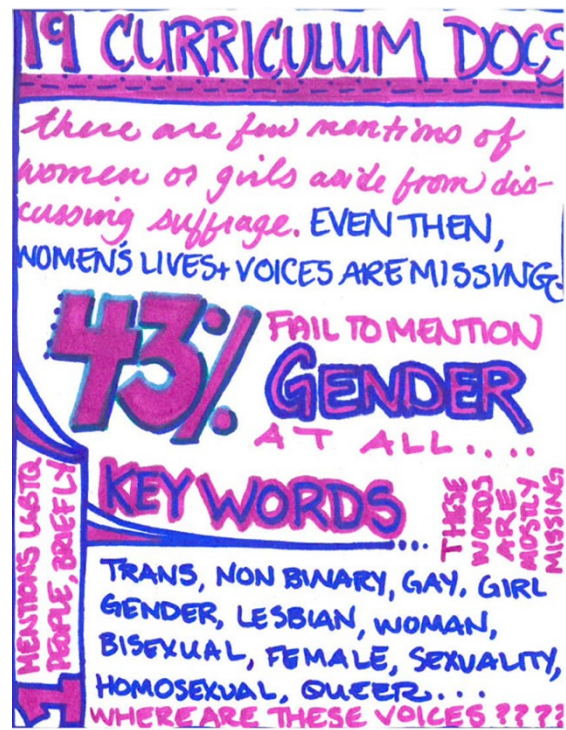 19 CURRICULUM DOCS
there are few mentions of
women or girls aside from dis-
cussing suffrage. EVEN THEN,
WOMEN'S LIVES + VOICES ARE MISSING.
43% FAIL TO MENTION
GENDER
AT ALL....
KEY WORDS...
THESE
WORDS
ARE
MOSTLY
MISSING
TRANS, NON BINARY, GAY, GIRL
GENDER, LESBIAN, WOMAN,
BISEXUAL, FEMALE, SEXUALITY,
HOMOSEXUAL, QUEER...
WHERE ARE THESE VOICES ????
1 MENTIONS LGBTQ
PEOPLE, BRIEFLY